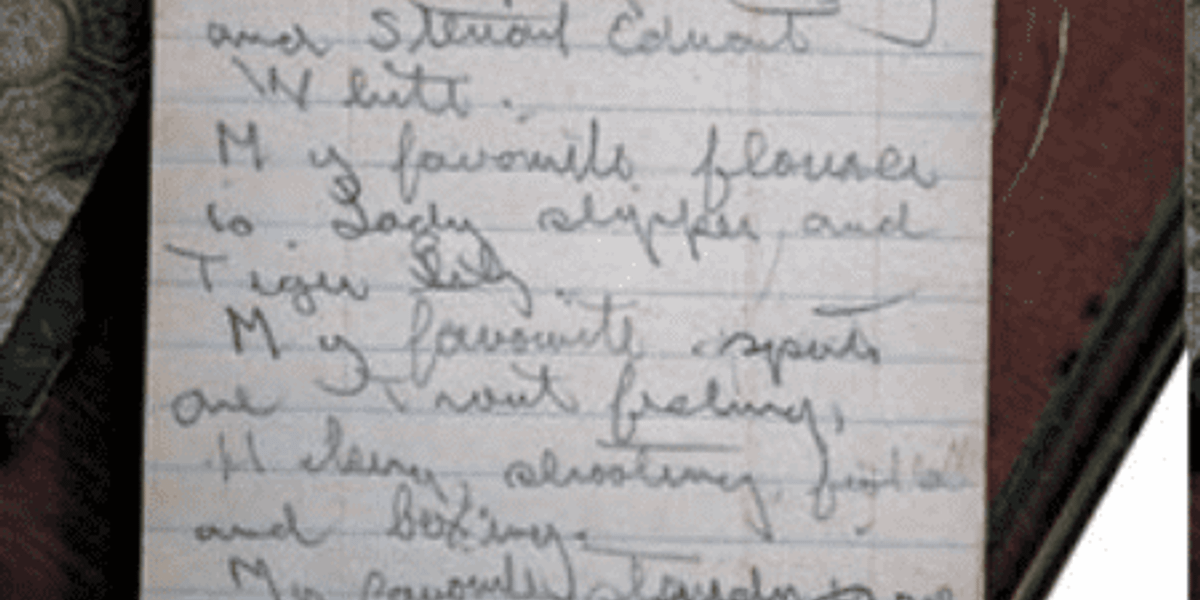 and Stewart Edward
White.
My favourite flower
is Lady slipper and
Tiger Lily.
My favourite sports
are Trout fishing,
Hiking, shooting,
and boxing.
My favourite